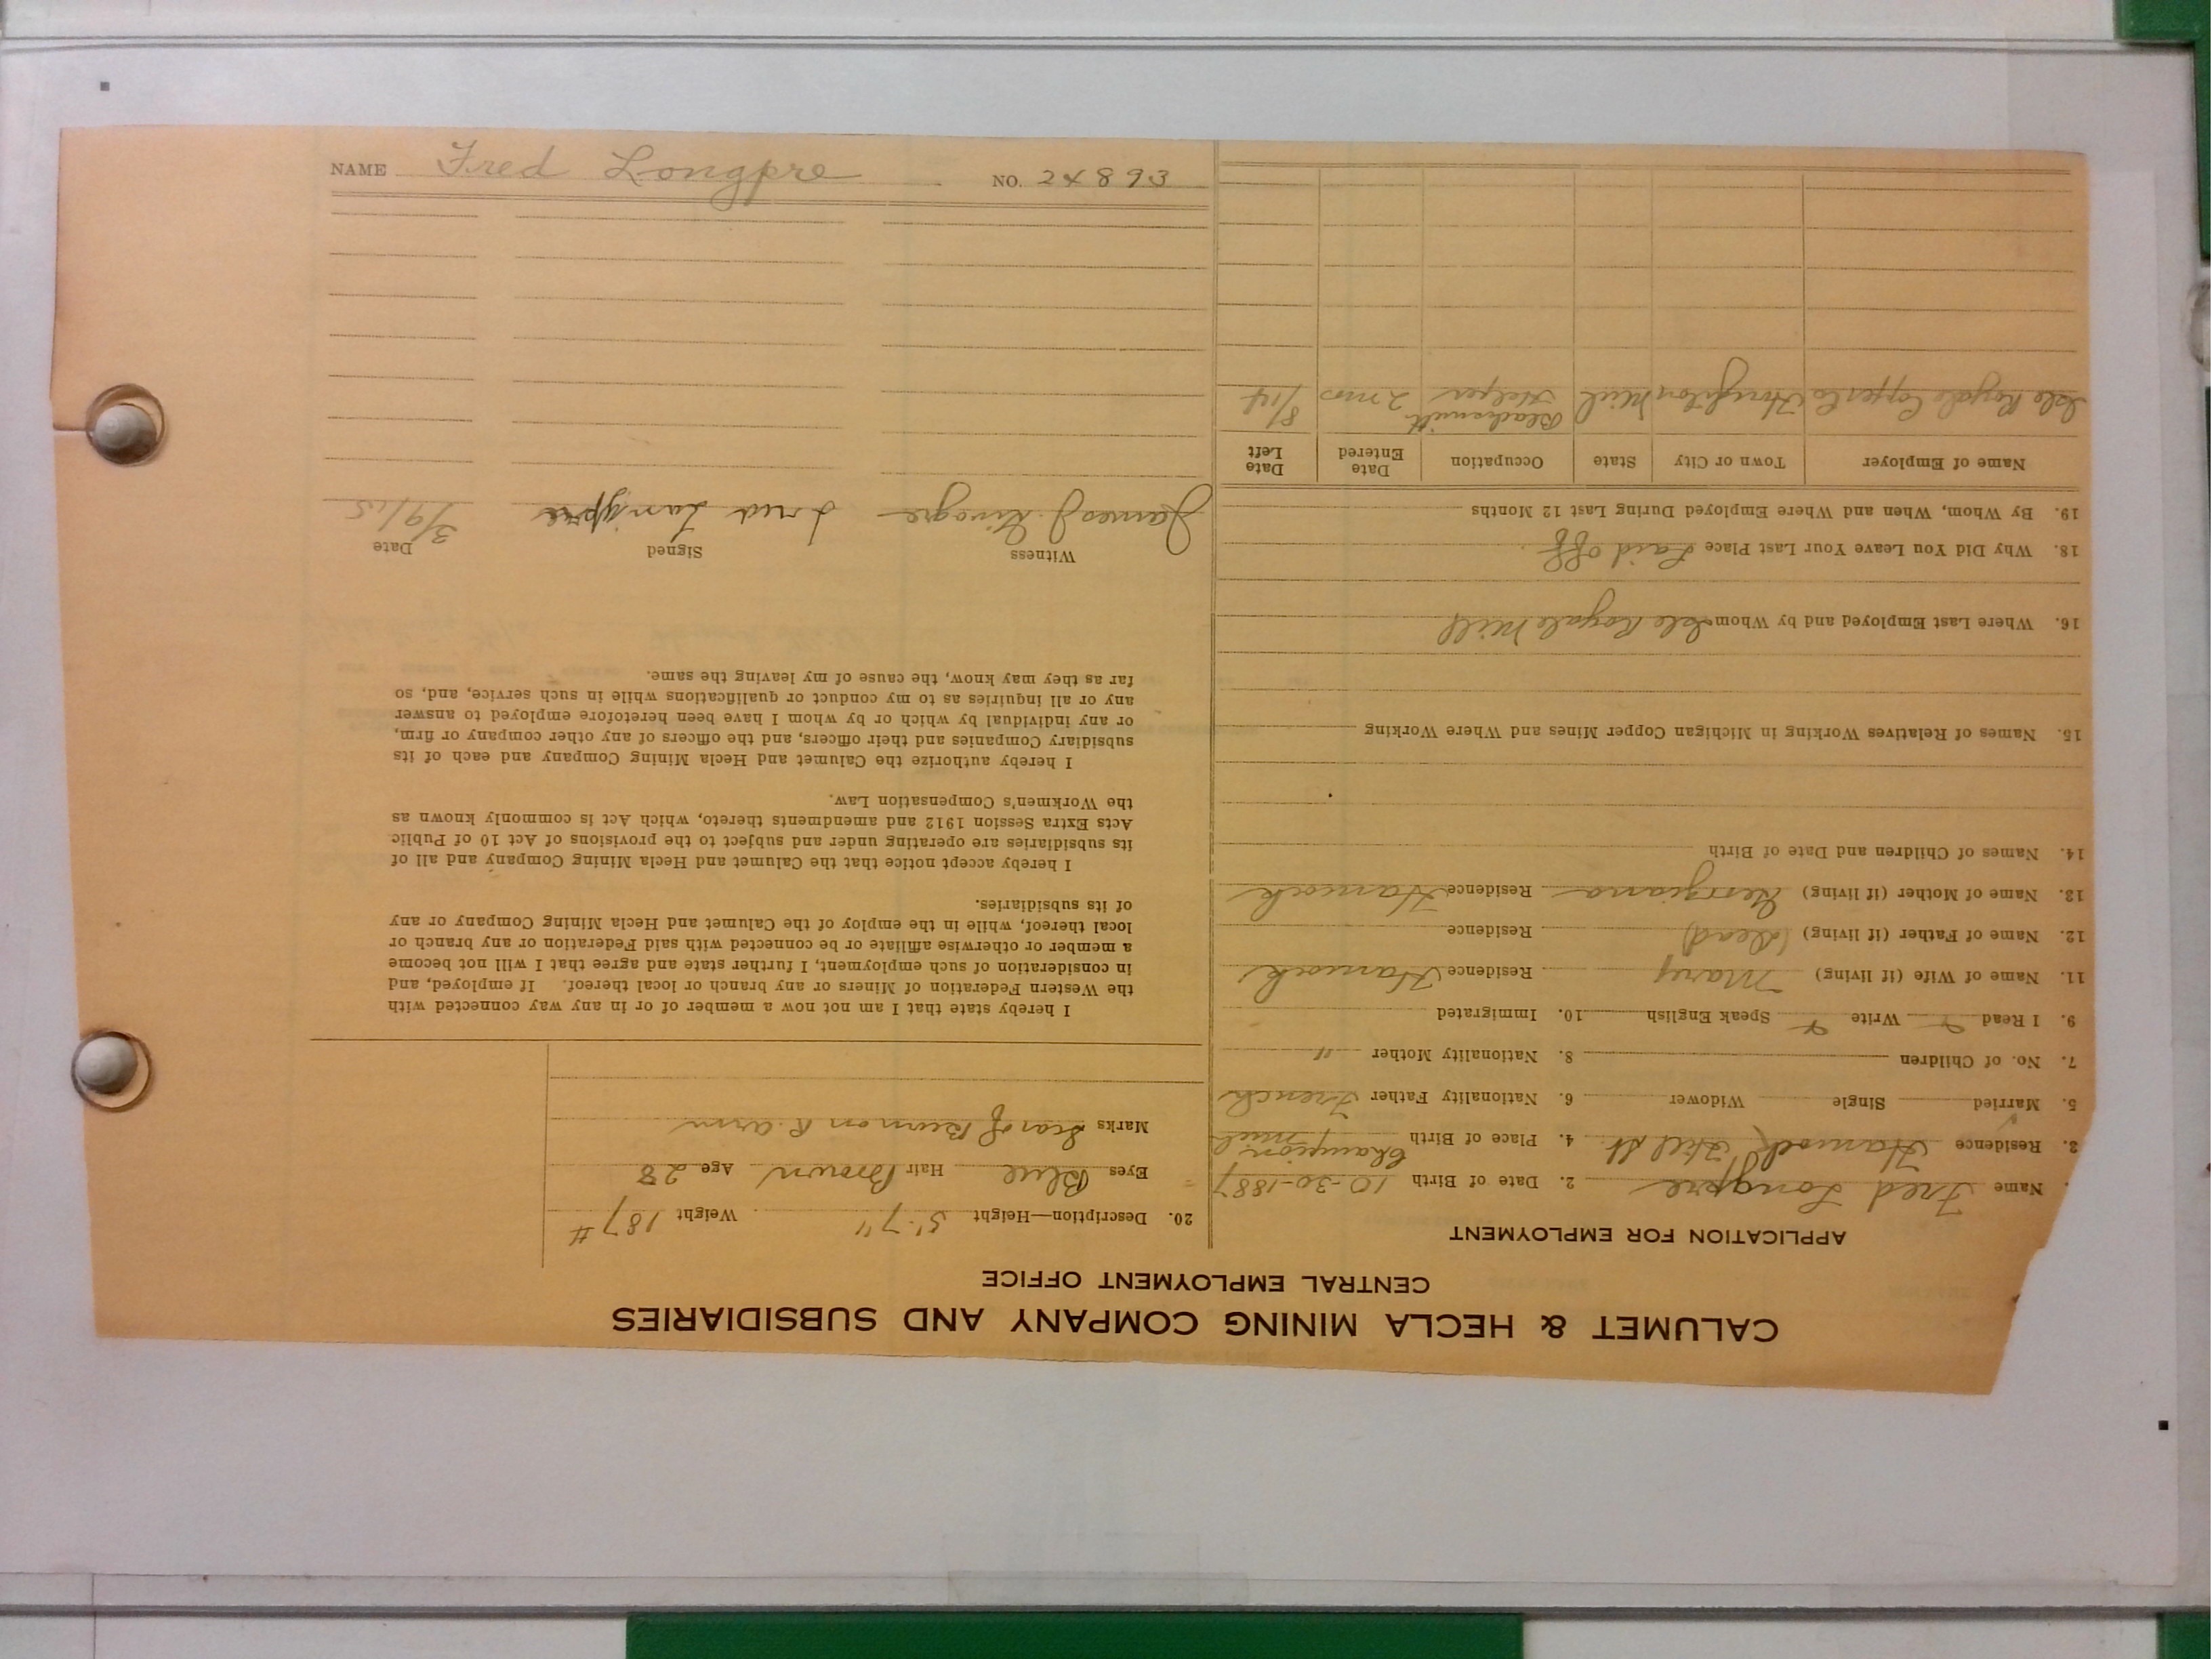 NAME Fred Longpre NO. 24893
CALUMET & HECLA MINING COMPANY AND SUBSIDIARIES
CENTRAL EMPLOYMENT OFFICE
APPLICATION FOR EMPLOYMENT
Name Fred Longpre 2. Date of Birth 10-30-1887
3. Residence Hancock Hill St. 4. Place of Birth Champion Mich
5. Married Single Widower 6. Nationality Father French
7. No. of Children 8. Nationality Mother "
9. I Read Write Speak English 10. Immigrated
11. Name of Wife (if living) Mary Residence Hancock
12. Name of Father (if living) (Dead) Residence
13. Name of Mother (if living) Georgiana Residence Hancock
14. Names of Children and Date of Birth
15. Names of Relatives Working in Michigan Copper Mines and Where Working
16. Where Last Employed and by Whom Isle Royale Mill
18. Why Did You Leave Your Last Place Laid off
19. By Whom, When and Where Employed During Last 12 Months
Name of Employer Town or City State Occupation Date Entered Date Left
Isle Royale Copper Co Houghton Mich Blacksmith Helper 2 mos 8/14
20. Description—Height 5' 7" Weight 187 #
Eyes Blue Hair Brown Age 28
Marks Scar of Burn on R. arm
I hereby state that I am not now a member of or in any way connected with
the Western Federation of Miners or any branch or local thereof. If employed, and
in consideration of such employment, I further state and agree that I will not become
a member or otherwise affiliate or be connected with said Federation or any branch or
local thereof, while in the employ of the Calumet and Hecla Mining Company or any
of its subsidiaries.
I hereby accept notice that the Calumet and Hecla Mining Company and all of
its subsidiaries are operating under and subject to the provisions of Act 10 of Public
Acts Extra Session 1912 and amendments thereto, which Act is commonly known as
the Workmen's Compensation Law.
I hereby authorize the Calumet and Hecla Mining Company and each of its
subsidiary Companies and their officers, and the officers of any other company or firm,
or any individual by which or by whom I have been heretofore employed to answer
any or all inquiries as to my conduct or qualifications while in such service, and, so
far as they may know, the cause of my leaving the same.
Witness Signed Date
James J. Fred Longpre 3/9/15